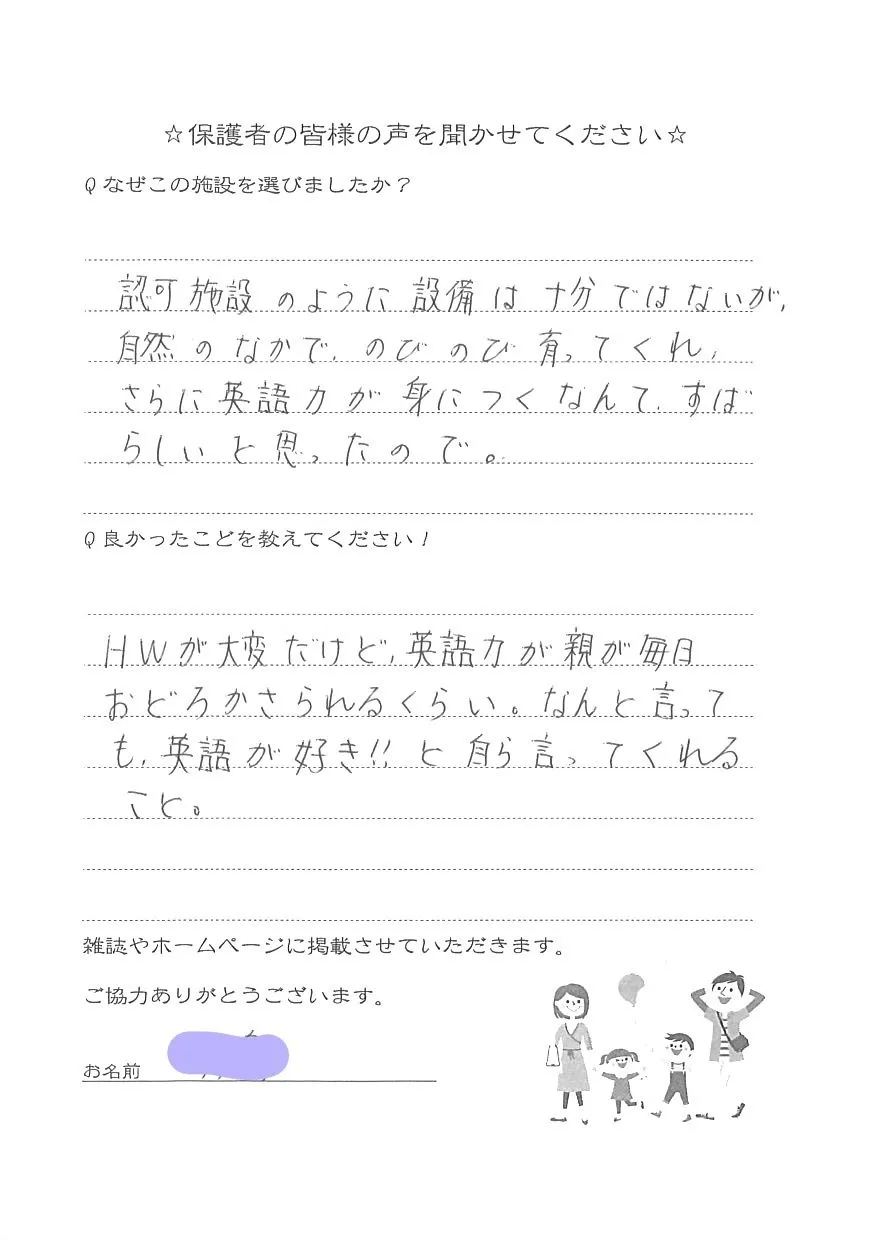 ☆保護者の皆様の声を聞かせてください☆
Qなぜこの施設を選びましたか？
認可施設のように設備は十分ではないが、
自然のなかで、のびのび育ってくれ、
さらに英語力が身につくなんて、すば
らしいと思ったので。
Q良かったことを教えてください！
HWが大変だけど、英語力が親が毎日
おどろかさられるくらい。なんと言って
も、英語が好き!!と自ら言ってくれる
こと。
雑誌やホームページに掲載させていただきます。
ご協力ありがとうございます。
お名前